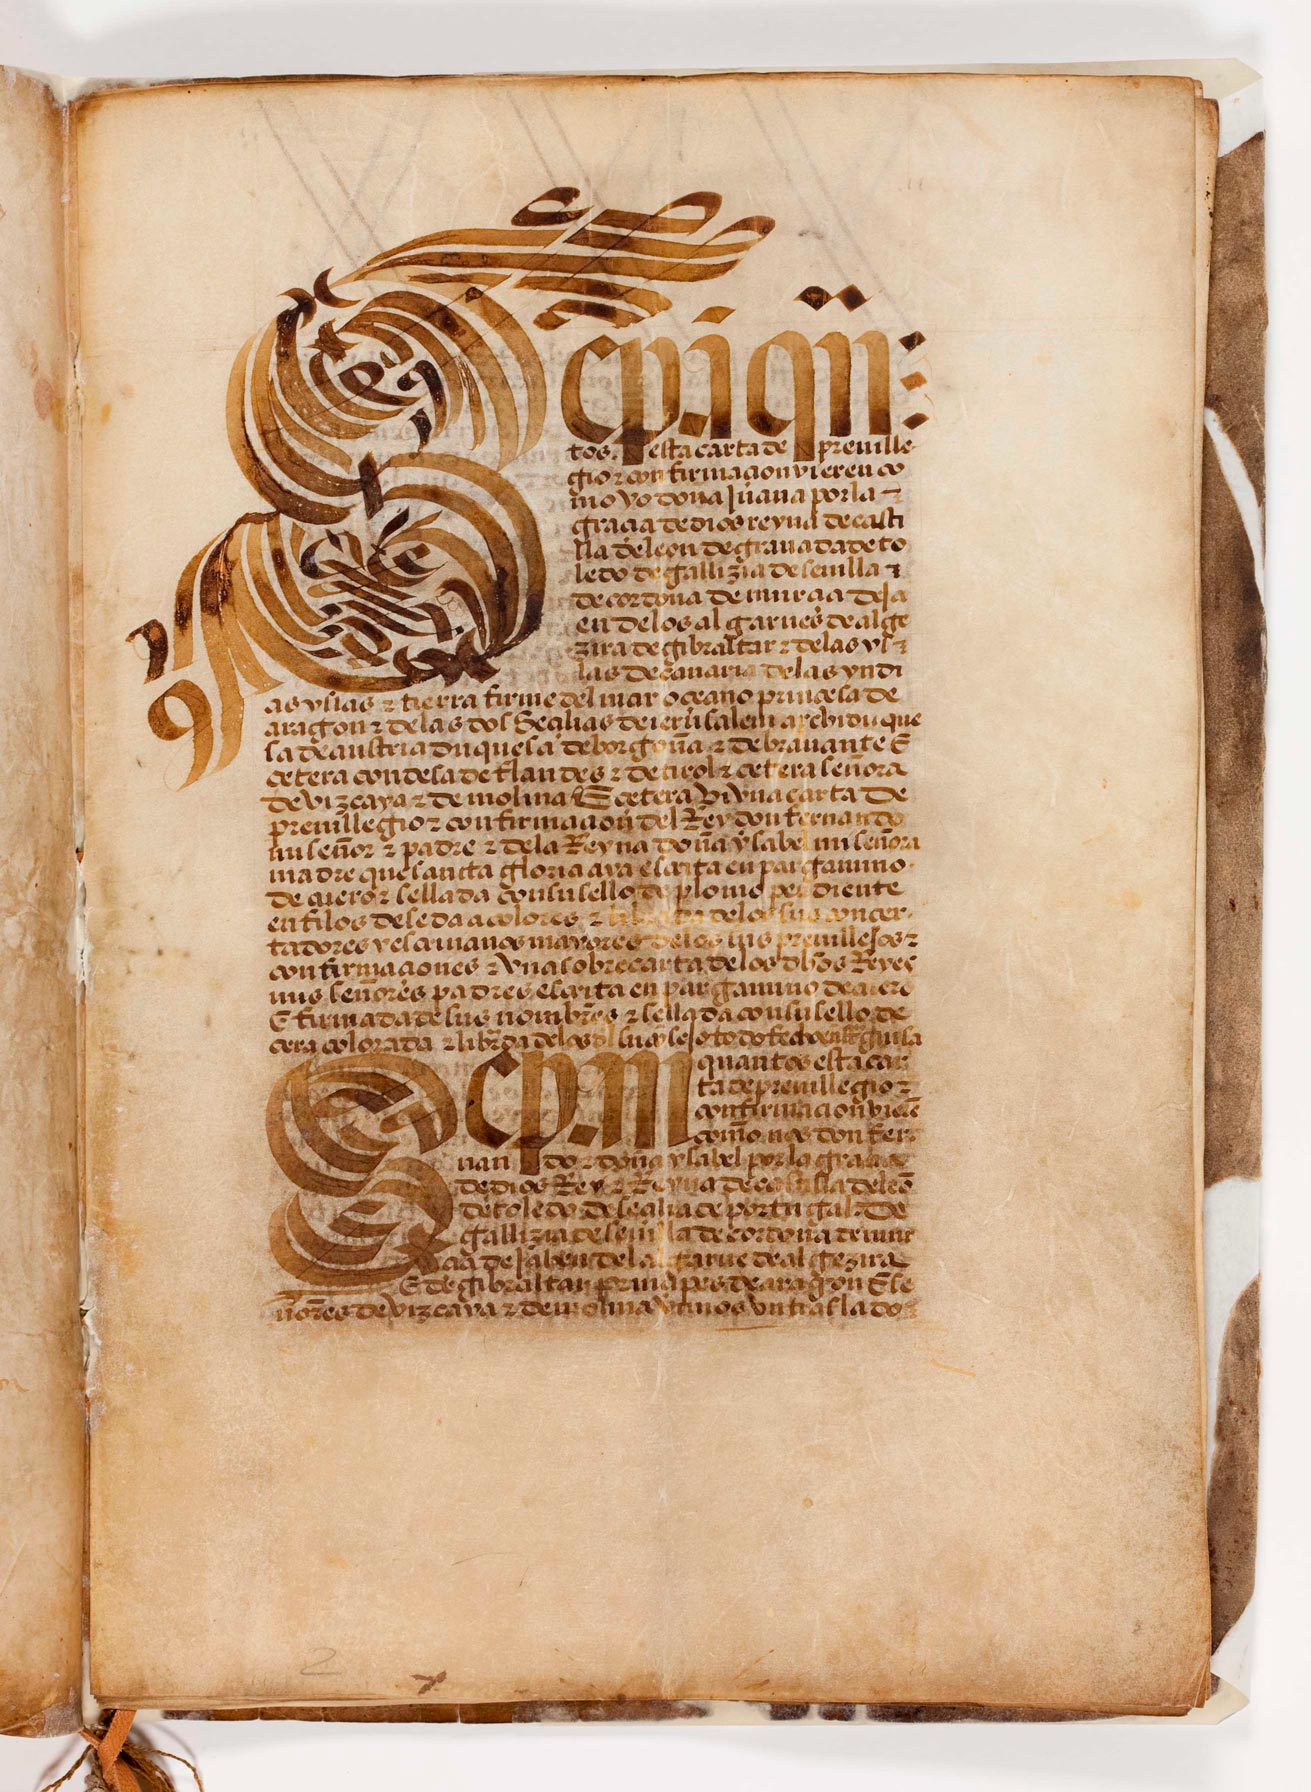 Sepã quã
tos. esta carta de preuille
gio ⁊ confirmacion vieren co
mo yo doña Juana por la
gracia de dios reyna de casti
lla de leon de granada de to
ledo de gallizia de seuilla ⁊
de cordoua de murcia de Ja
en de los algarues de alge
zira de gibraltar ⁊ de las ys
las de canaria de las yndi
as yslas ⁊ tierra firme del mar oceano princesa de
aragon ⁊ de las dos Secilias de ierusalem archiduque
sa de austria duquesa de borgoña ⁊ de brauante E
cetera condesa de flandes ⁊ de tirol ⁊ cetera señora
de vizcaya ⁊ de molina E cetera vi vna carta De
preuillegio ⁊ confirmacion del Rey don fernando
mi señor ⁊ padre ⁊ de la Reyna doña ysabel mi señora
madre que santta gloria aya escrita en pargamino
de cuero ⁊ sellada con su sello de plomo pendiente
en filos de seda a colores ⁊ librada de los sus concer-
tadores y escriuanos mayores de los sus preuillejos ⁊
confirmaciones ⁊ vna sobrecarta de los dhos Reyes
mis señores padres escrita en pargamino de cuero
E firmada de sus nombres ⁊ sellada con su sello de
cera colorada ⁊ librada de los del su consejo todo fecho en esta guisa
Sepã quantos esta car
ta de preuillegio ⁊
confirmacion vierẽ
como nos don fer
nando ⁊ doña ysabel por la gracia
de dios Rey ⁊ Reyna de castilla de leõ
de toledo de secilia de portugal De
gallizia de seuilla de cordoua de mur
cia de Jahen del algarue de algezira
E de gibraltar principes de aragon E se
ñores de vizcaya ⁊ de molina vimos vn traslado
2